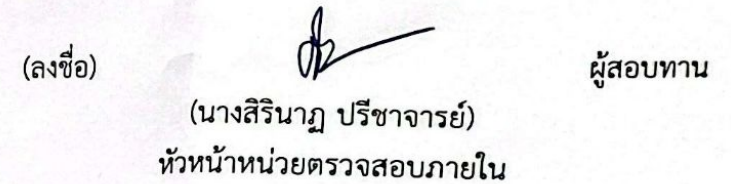 (ลงชื่อ) ผู้สอบทาน
(นางสิรินาฏ ปรีชาจารย์)
หัวหน้าหน่วยตรวจสอบภายใน